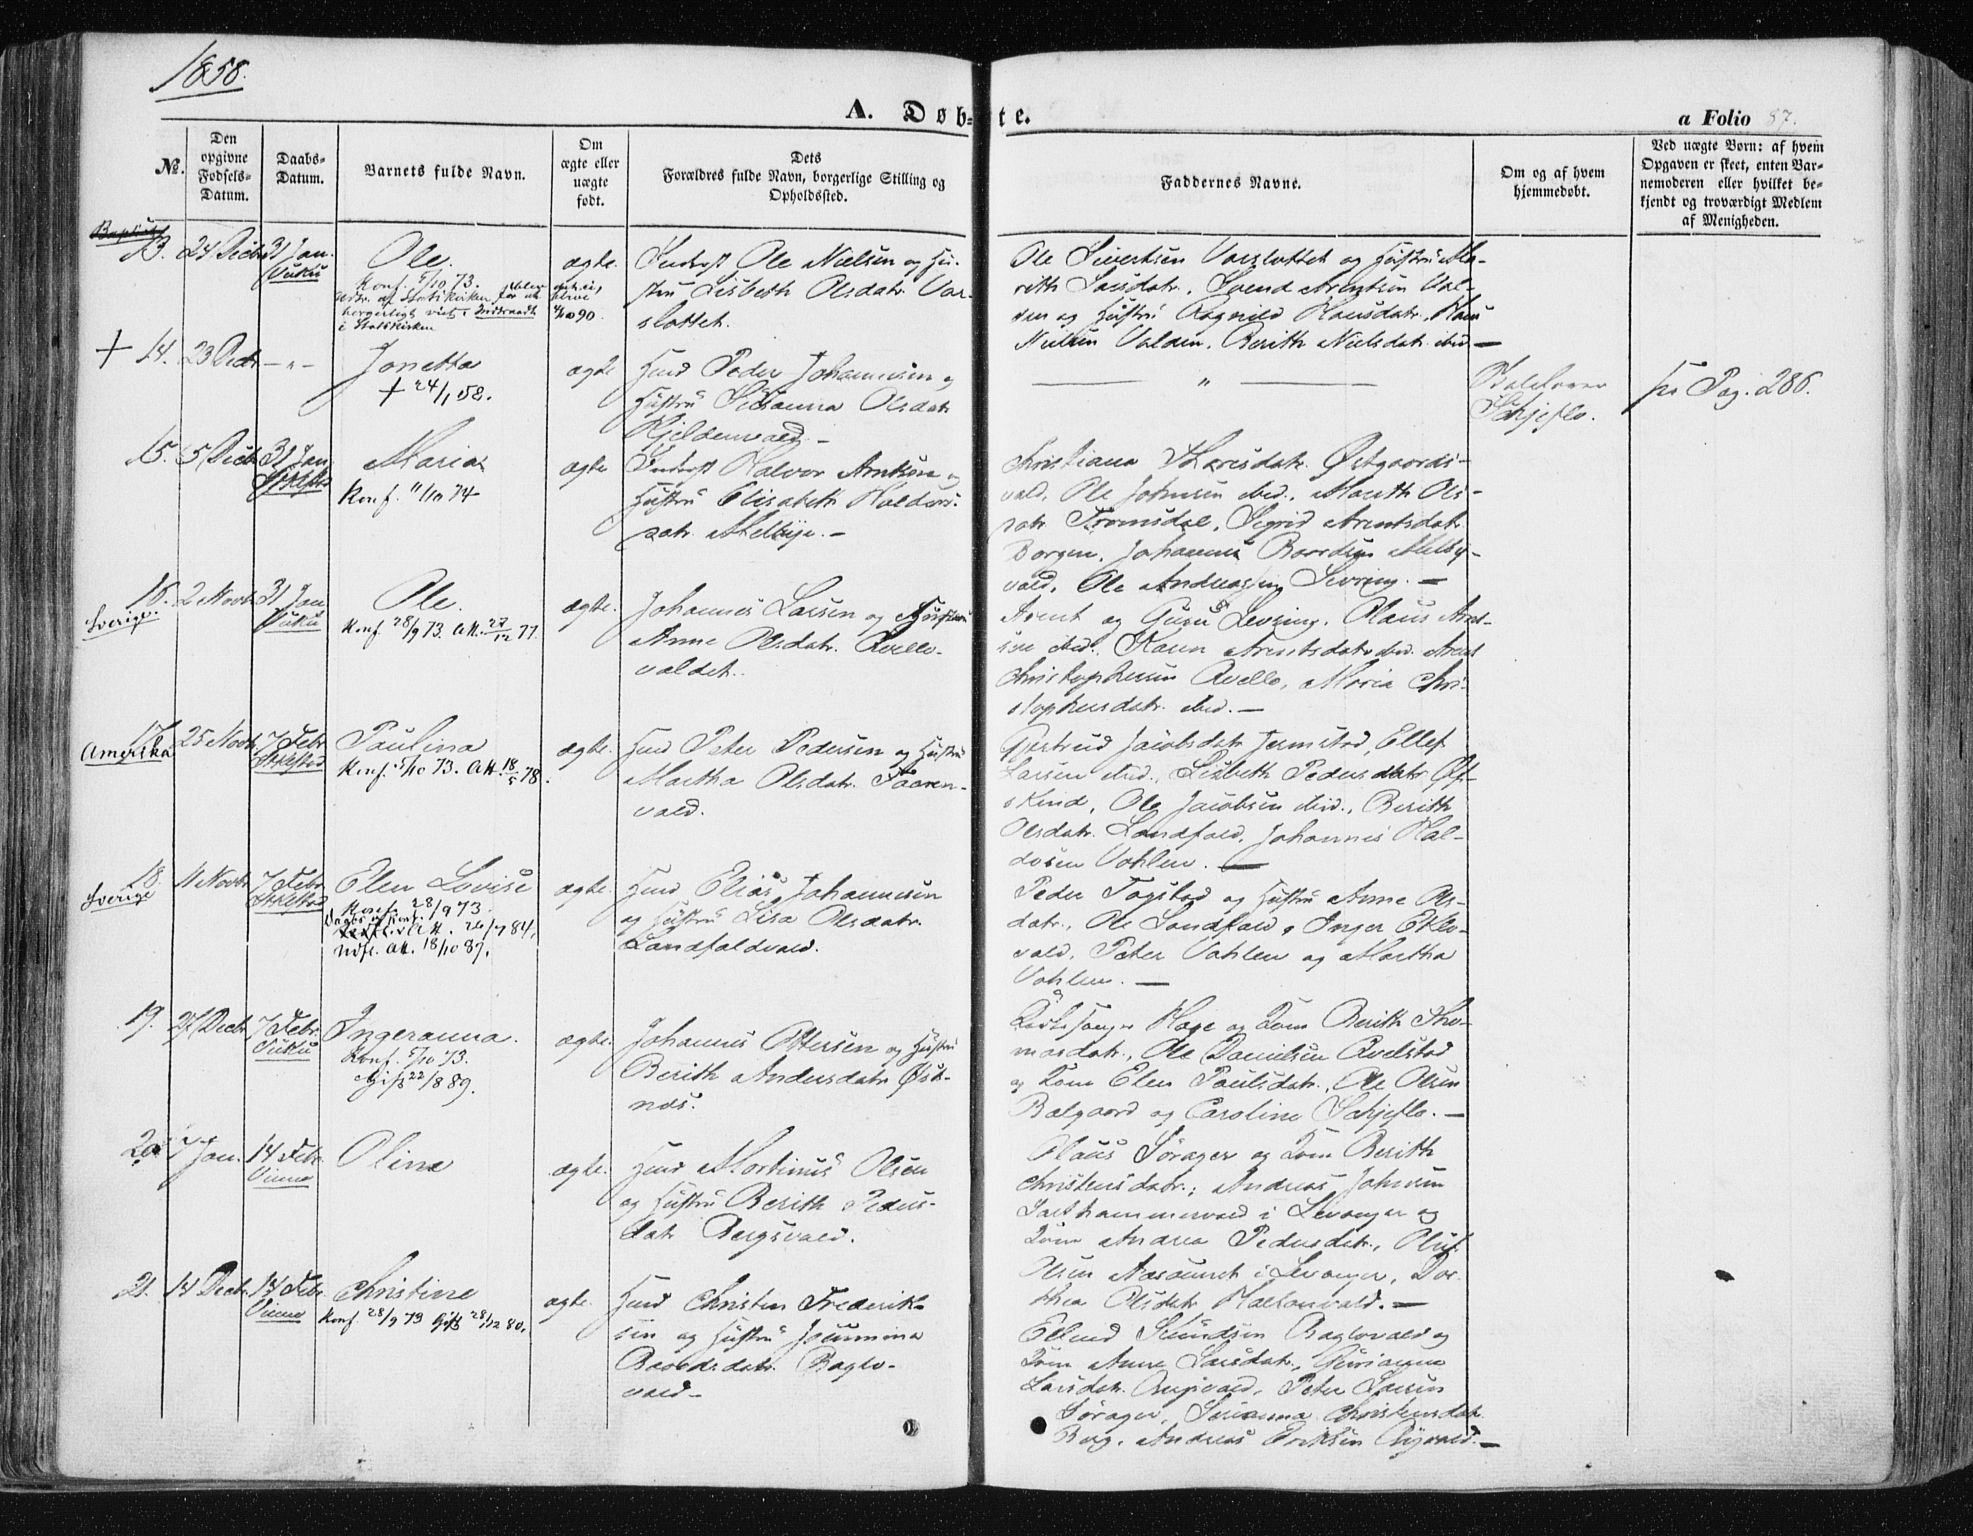 1858.
A. Døbte.
a Folio 87.
№.
Den opgivne Fødsels-Datum.
Daabs-Datum.
Barnets fulde Navn.
Om ægte eller uægte født.
Dets Forældres fulde Navn, borgerlige Stilling og Opholdssted.
Faddernes Navne.
Om og af hvem hjemmedøbt.
Ved uægte Børn: af hvem Opgaven er skeet, enten Barnemoderen eller hvilket bekjendt og troværdigt Medlem af Menigheden.
13. 24 Decbr 31 Jan. Vuku
Ole.
Konf. 5/10 73.
i Statskirken
ægte.
Inderst Ole Nielsen og Hu-
stru Lisbeth Olsdatr. Var-
slottet.
Ole Sivertsen Varslottet og Hustru Ma-
reth Larsdatr. Svend Arentsen Val-
den og Hustru Ragnild Hansdatr. Hans
Nielsen Valden. Berith Nielsdatr. ibid —
+ 14. 23 Decbr — „ —
Jonetta
+ 24/1 58.
ægte
Hmd Peder Johannesen og
Hustru Susanna Olsdatr
— „ —
Schjeflo.
Pag. 286.
15. 5 Decbr 31 Jan
Maria
Konf. 11/10 74
ægte
Inderst Halvor Arntsen og
Hustru Elisabeth Haldors-
datr. Melbye. —
Christiana Olsdatr. Østgaards-
vald, Ole Johnsen ibid., Mareth Ols-
datr. Tromsdal, Sigrid Arentsdatr
Borgen, Johannes Baardsen Melby-
vald, Ole Andreasen Levring. —
16. 2 Novbr 31 Jan Vuku
Sverige
Ole.
Konf. 28/9 73. Att. 27/12 77.
ægte.
Johannes Larsen og Hustru
Anne Olsdatr. Qvello-
valdet.
Arent og Guru Levring. Olaus Arnt-
sen ibid. Karen Arentsdatr ibid. Arent
Christophersen Qvello, Maria Chri-
stophersdatr. ibid. —
17. 25 Novbr. 7 Febr Stiklestad
Amerika
Paulina
Konf. 5/10 73. Att. 18/5 78.
ægte.
Hmd Peter Pedersen og Hustru
Martha Olsdatr. Faaren-
vald.
Gjertrud Jacobsdatr Jermstad, Ellef
Larsen ibid., Lisbeth Pedersdatr Øf-
skind, Ole Jacobsen ibid., Berith
Olsdatr. Landfald, Johannes Hal-
dosen Vohlen. —
18. 11 Novbr 7 Febr Stiklestad
Sverige
Elen Lovise
Konf. 28/9 73.
Att. 26/7 84.
Att. 18/10 87.
ægte.
Hmd Elias Johannesen
og Hustru Lisa Olsdatr.
Landfaldvald.
Peder Fogstad og Hustru Anne Ols-
datr, Ole Landfald, Inger Eklo-
vald, Peter Vohlen og Martha
Vohlen. —
19. 27 Decbr. 7 Febr. Vuku
Ingeranna.
Konf. 5/10 73.
Gift 22/8 89.
ægte.
Johannes Ottersen og Hustru
Berith Andersdatr Øst-
nes.
Kirkesanger Hage og Kone Berith Tho-
masdatr., Ole Danielsen Qvelstad
og Kone Elen Paulsdatr, Ole Olsen
Balgaard og Caroline Schjeflo. —
20. 7 Jan. 14 Febr. Vinne
Olina
ægte.
Hmd Martinus Olsen
og Hustru Berith Peders-
datr Bergsvald.
Olaus Sørager og Kone Berith
Christensdatr; Andreas Johnsen
i Levanger og
Kone Andrea Pedersdatr., Oluf
Olsen Næssunet i Levanger, Dor-
thea Olsdatr. Haltonvald. —
21. 14 Decbr 14 Febr. Vinne
Christine
Konf. 28/9 73 Gift 28/12 80.
ægte.
Hmd Christen Frederik-
sen og Hustru Jeremina
Baardsdatr. Baglo-
vald. —
Ellend Svendsen Baglovald og
Kone Anne Larsdatr.,
Larsdatr. Peter Larsen
Sørager, Serianna Christensdatr.
Berg, Andreas Eriksen —